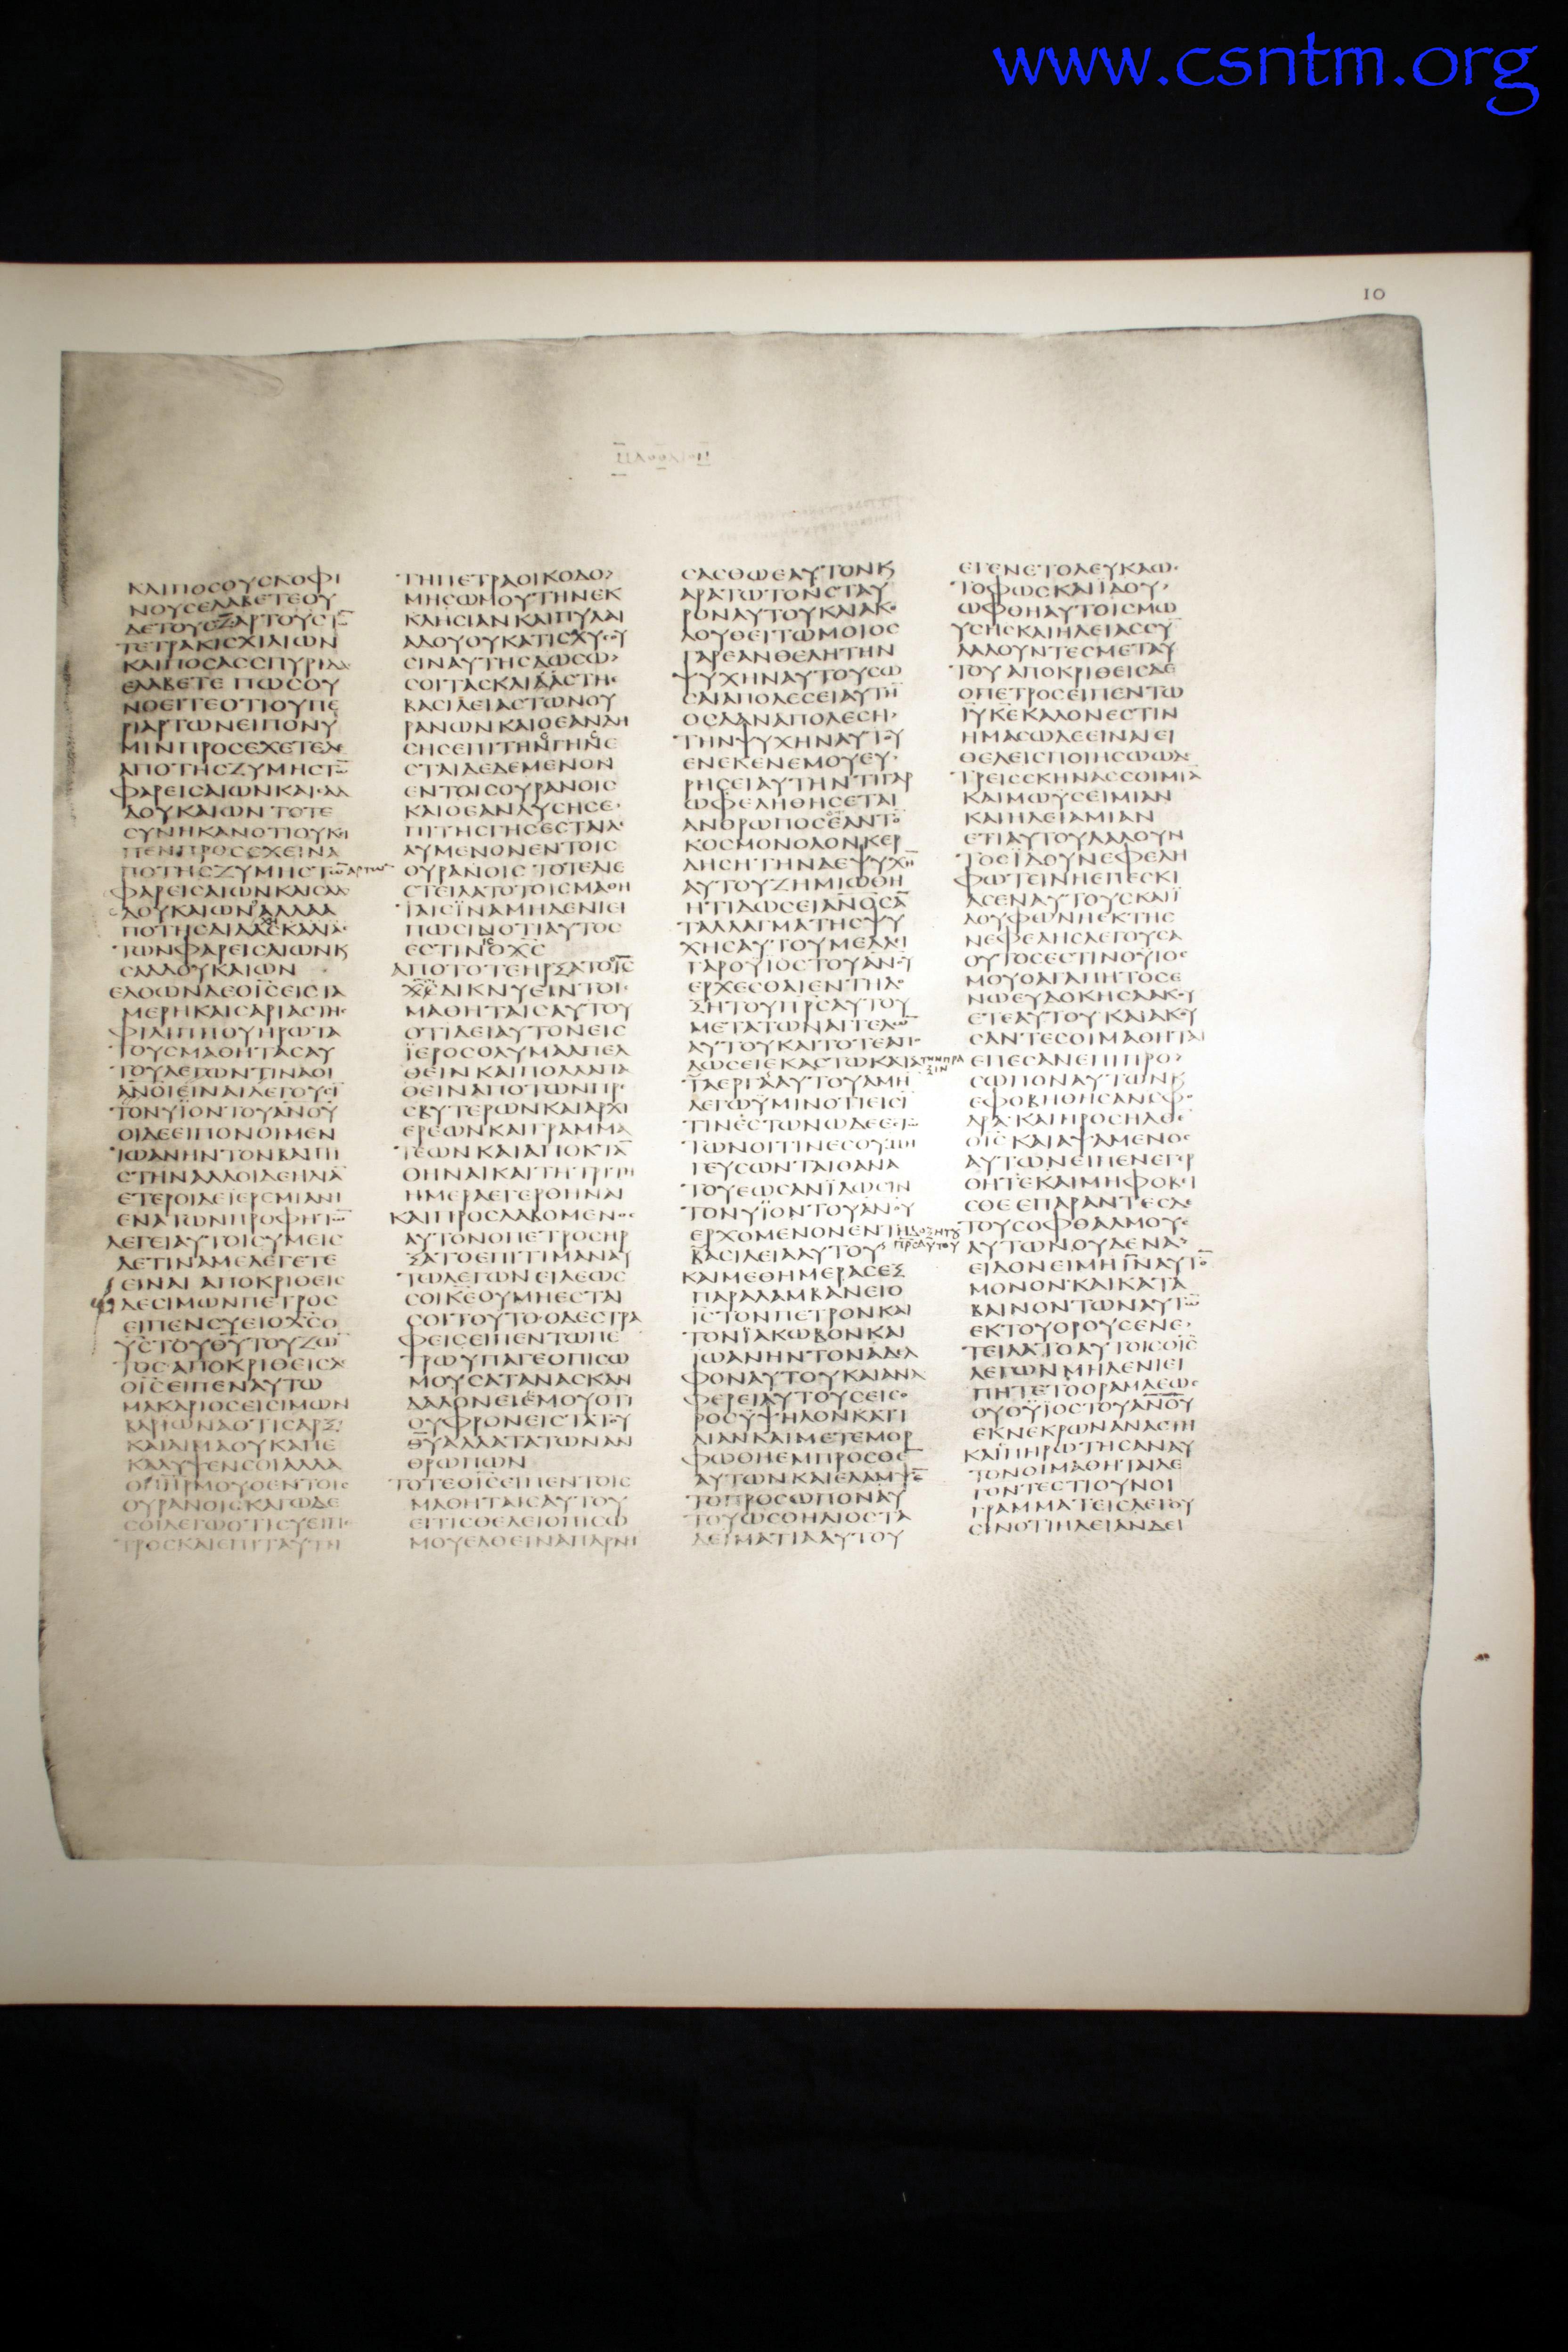 www.csntm.org
10
ΚΑΙΠΟCΟΥCΚΟΦΙ
ΝΟΥCΕΛΑΒΕΤΕΟΥ
ΤΕΤΡΑΚΙCΧΙΛΙΩΝ
ΚΑΙΠΟCΑCCΠΥΡΙΔΑ
ΕΛΑΒΕΤΕ ΠΩCΟΥ
ΝΟΕΙΤΕΟΤΙΟΥΠΕ
ΡΙΑΡΤΩΝΕΙΠΟΝΥ
ΜΙΝΠΡΟCΕΧΕΤΕΔΕ
ΑΠΟΤΗCΖΥΜΗCΤΩ̅
ΦΑΡΕΙCΑΙΩΝΚΑΙCΑΔ
ΔΟΥΚΑΙΩΝ ΤΟΤΕ
CΥΝΗΚΑΝΟΤΙΟΥΚΕΙ
ΠΕΝΠΡΟCΕΧΕΙΝΑ
ΦΑΡΕΙCΑΙΩΝΚΑΙCΑΔ
ΔΟΥΚΑΙΩΝΑΛΛΑΑ
ΤΩΝΦΑΡΕΙCΑΙΩΝΚ
CΑΔΔΟΥΚΑΙΩΝ
ΕΛΘΩΝΔΕΟΙ̅C̅ΕΙCΤΑ
ΜΕΡΗΚΑΙCΑΡΙΑCΤΗC
ΦΙΛΙΠΠΟΥΗΡΩΤΑ
ΤΟΥCΜΑΘΗΤΑCΑΥ
ΤΟΥΛΕΓΩΝΤΙΝΑΟΙ
ΤΟΝΥΪΟΝΤΟΥΑ̅Ν̅Ο̅Υ̅
ΟΙΔΕΕΙΠΟΝΟΙΜΕΝ
ΪΩΑΝΗΝΤΟΝΒΑΠΤΙ
CΤΗΝΑΛΛΟΙΔΕΗΛΙΑ̅
ΕΤΕΡΟΙΔΕΪΕΡΕΜΙΑΝΗ
ΕΝΑΤΩΝΠΡΟΦΗΤΩ̅
ΛΕΓΕΙΑΥΤΟΙCΥΜΕΙC
ΔΕΤΙΝΑΜΕΛΕΓΕΤΕ
ΕΙΝΑΙ ΑΠΟΚΡΙΘΕΙC
ΔΕCΙΜΩΝΠΕΤΡΟC
ΕΙΠΕΝCΥΕΙΟΧ̅C̅Ο
Υ̅C̅ΤΟΥΘ̅Υ̅ΤΟΥΖΩ̅
ΤΟCΑΠΟΚΡΙΘΕΙCΔΕ
ΟΙ̅C̅ΕΙΠΕΝΑΥΤΩ
ΜΑΚΑΡΙΟCΕΙCΙΜΩΝ
ΒΑΡΙΩΝΑΟΤΙCΑΡΞ
ΚΑΙΑΙΜΑΟΥΚΑΠΕ
ΚΑΛΥΨΕΝCΟΙΑΛΛΑ
ΟΠ̅Η̅Ρ̅ΜΟΥΟΕΝΤΟΙC
ΟΥΡΑΝΟΙCΚΑΓΩΔΕ
CΟΙΛΕΓΩΟΤΙCΥΕΙΠΕ
ΤΡΟCΚΑΙΕΠΙΤΑΥΤΗ
ΤΗΠΕΤΡΑΟΙΚΟΔΟ
ΜΗCΩΜΟΥΤΗΝΕΚ
ΚΛΗCΙΑΝΚΑΙΠΥΛΑΙ
ΑΔΟΥΟΥΚΑΤΙCΧΥCΟΥ
CΙΝΑΥΤΗCΔΩCΩ
CΟΙΤΑCΚΛΕΙΔΑCΤΗC
ΒΑCΙΛΕΙΑCΤΩΝΟΥ
ΡΑΝΩΝΚΑΙΟΕΑΝΔΗ
CΗCΕΠΙΤΗΝΓΗΝΕ
CΤΑΙΔΕΔΕΜΕΝΟΝ
ΕΝΤΟΙCΟΥΡΑΝΟΙC
ΚΑΙΟΕΑΝΛΥCΗCΕ
ΠΙΤΗCΓΗCΕCΤΑΙΛΕ
ΛΥΜΕΝΟΝΕΝΤΟΙC
ΟΥΡΑΝΟΙC ΤΟΤΕΔΙΕ
CΤΕΙΛΑΤΟΤΟΙCΜΑΘΗ
ΤΑΙCΪΝΑΜΗΔΕΝΙΕΙ
ΠΩCΙΝΟΤΙΑΥΤΟC
ΕCΤΙΝΟΧ̅C̅
ΑΠΟΤΟΤΕΗΡΞΑΤΟΙ̅C̅
Χ̅C̅ΔΙΚΝΥΕΙΝΤΟΙC
ΜΑΘΗΤΑΙCΑΥΤΟΥ
ΟΤΙΔΕΙΑΥΤΟΝΕΙC
ΪΕΡΟCΟΛΥΜΑΑΠΕΛ
ΘΕΙΝΚΑΙΠΟΛΛΑΠΑ
ΘΕΙΝΑΠΟΤΩΝΠΡΕ
CΒΥΤΕΡΩΝΚΑΙΑΡΧΙ
ΕΡΕΩΝΚΑΙΓΡΑΜΜΑ
ΤΕΩΝΚΑΙΑΠΟΚΤΑ̅
ΘΗΝΑΙΚΑΙΤΗΤΡΙΤΗ
ΗΜΕΡΑΕΓΕΡΘΗΝΑΙ
ΚΑΙΠΡΟCΛΑΒΟΜΕΝΟC
ΑΥΤΟΝΟΠΕΤΡΟCΗΡ
ΞΑΤΟΕΠΙΤΙΜΑΝΑΥ
ΤΩΛΕΓΩΝΕΙΛΕΩC
CΟΙΚ̅Ε̅ΟΥΜΗΕCΤΑΙ
CΟΙΤΟΥΤΟΟΔΕCΤΡΑ
ΦΕΙCΕΙΠΕΝΤΩΠΕ
ΤΡΩΥΠΑΓΕΟΠΙCΩ
ΜΟΥCΑΤΑΝΑCΚΑΝ
ΔΑΛΟΝΕΙΕΜΟΥΟΤΙ
ΟΥΦΡΟΝΕΙCΤΑΤΟΥ
Θ̅Υ̅ΑΛΛΑΤΑΤΩΝΑΝ
ΘΡΩΠΩΝ
ΤΟΤΕΟΙ̅C̅ΕΙΠΕΝΤΟΙC
ΜΑΘΗΤΑΙCΑΥΤΟΥ
ΕΙΤΙCΘΕΛΕΙΟΠΙCΩ
ΜΟΥΕΛΘΕΙΝΑΠΑΡΝΗ
CΑCΘΩΕΑΥΤΟΝΚ
ΑΡΑΤΩΤΟΝCΤΑΥ
ΡΟΝΑΥΤΟΥΚΑΙΑΚΟ
ΛΟΥΘΕΙΤΩΜΟΙΟC
ΓΑΡΕΑΝΘΕΛΗΤΗΝ
ΨΥΧΗΝΑΥΤΟΥCΩ
CΑΙΑΠΟΛΕCΕΙΑΥΤΗ̅
ΟCΔΑΝΑΠΟΛΕCΗ
ΤΗΝΨΥΧΗΝΑΥΤΟΥ
ΕΝΕΚΕΝΕΜΟΥΕΥ
ΡΗCΕΙΑΥΤΗΝΤΙΓΑΡ
ΩΦΕΛΗΘΗCΕΤΑΙ
ΑΝΘΡΩΠΟCΕΑΝΤΟ̅
ΚΟCΜΟΝΟΛΟΝΚΕΡ
ΔΗCΗΤΗΝΔΕΨΥΧΗ̅
ΑΥΤΟΥΖΗΜΙΩΘΗ
ΗΤΙΔΩCΕΙΑ̅Ν̅Ο̅C̅Α̅
ΤΑΛΛΑΓΜΑΤΗCΨΥ
ΧΗCΑΥΤΟΥΜΕΛΛΕΙ
ΓΑΡΟΥΪΟCΤΟΥΑ̅Ν̅Ο̅Υ̅
ΕΡΧΕCΘΑΙΕΝΤΗΔΟ
ΞΗΤΟΥΠ̅Ρ̅C̅ΑΥΤΟΥ
ΜΕΤΑΤΩΝΑΓΓΕΛΩ̅
ΑΥΤΟΥΚΑΙΤΟΤΕΑΠΟ
ΔΩCΕΙΕΚΑCΤΩΚΑΤΑ
ΤΑΕΡΓΑΑΥΤΟΥΑΜΗ̅
ΛΕΓΩΥΜΙΝΟΤΙΕΙCΙ̅
ΤΙΝΕCΤΩΝΩΔΕΕCΤΩ
ΤΩΝΟΙΤΙΝΕCΟΥΜΗ
ΓΕΥCΩΝΤΑΙΘΑΝΑ
ΤΟΥΕΩCΑΝΪΔΩCΙΝ
ΤΟΝΥΪΟΝΤΟΥΑ̅Ν̅Ο̅Υ̅
ΕΡΧΟΜΕΝΟΝΕΝΤΗ
ΒΑCΙΛΕΙΑΑΥΤΟΥ
ΚΑΙΜΕΘΗΜΕΡΑCΕΞ
ΠΑΡΑΛΑΜΒΑΝΕΙΟ
Ι̅C̅ΤΟΝΠΕΤΡΟΝΚΑΙ
ΤΟΝΪΑΚΩΒΟΝΚΑΙ
ΙΩΑΝΗΝΤΟΝΑΔΕΛ
ΦΟΝΑΥΤΟΥΚΑΙΑΝΑ
ΦΕΡΕΙΑΥΤΟΥCΕΙCΟ
ΡΟCΥΨΗΛΟΝΚΑΤΙ
ΔΙΑΝΚΑΙΜΕΤΕΜΟΡ
ΦΩΘΗΕΜΠΡΟCΘΕ̅
ΑΥΤΩΝΚΑΙΕΛΑΜΨΕ̅
ΤΟΠΡΟCΩΠΟΝΑΥ
ΤΟΥΩCΟΗΛΙΟCΤΑ
ΔΕΙΜΑΤΙΑΑΥΤΟΥ
ΕΓΕΝΕΤΟΛΕΥΚΑΩC
ΤΟΦΩCΚΑΙΪΔΟΥ
ΩΦΘΗΑΥΤΟΙCΜΩ
ΥCΗCΚΑΙΗΛΕΙΑCCΥ
ΛΑΛΟΥΝΤΕCΜΕΤΑΥ
ΤΟΥ ΑΠΟΚΡΙΘΕΙCΔΕ
ΟΠΕΤΡΟCΕΙΠΕΝΤΩ
Ι̅Υ̅Κ̅Ε̅ΚΑΛΟΝΕCΤΙΝ
ΗΜΑCΩΔΕΕΙΝΑΙΕΙ
ΘΕΛΕΙCΠΟΙΗCΩΩΔΕ
ΤΡΕΙCCΚΗΝΑCCΟΙΜΙΑ̅
ΚΑΙΜΩΥCΕΙΜΙΑΝ
ΚΑΙΗΛΕΙΑΜΙΑΝ
ΕΤΙΑΥΤΟΥΛΑΛΟΥΝ
ΤΟCΪΔΟΥΝΕΦΕΛΗ
ΦΩΤΕΙΝΗΕΠΕCΚΙ
ΑCΕΝΑΥΤΟΥCΚΑΙΪ
ΔΟΥΦΩΝΗΕΚΤΗC
ΝΕΦΕΛΗCΛΕΓΟΥCΑ
ΟΥΤΟCΕCΤΙΝΟΥΪΟC
ΜΟΥΟΑΓΑΠΗΤΟCΕ
ΝΩΕΥΔΟΚΗCΑΑΚΟΥ
ΕΤΕΑΥΤΟΥ ΚΑΙΑΚΟΥ
CΑΝΤΕCΟΙΜΑΘΗΤΑΙ
ΕΠΕCΑΝΕΠΙΠΡΟ
CΩΠΟΝΑΥΤΩΝΚ
ΕΦΟΒΗΘΗCΑΝCΦΟ
ΔΡΑ ΚΑΙΠΡΟCΗΛΘΕ
ΟΙ̅C̅ ΚΑΙΑΨΑΜΕΝΟC
ΑΥΤΩΝΕΙΠΕΝΕΓΕΡ
ΘΗΤΕΚΑΙΜΗΦΟΒΕΙ
CΘΕ ΕΠΑΡΑΝΤΕCΔΕ
ΤΟΥCΟΦΘΑΛΜΟΥC
ΑΥΤΩΝΟΥΔΕΝΑ
ΕΙΔΟΝΕΙΜΗΙ̅Ν̅ΑΥΤΟ̅
ΜΟΝΟΝΚΑΙΚΑΤΑ
ΒΑΙΝΟΝΤΩΝΑΥΤΩ̅
ΕΚΤΟΥΟΡΟΥCΕΝΕ
ΤΕΙΛΑΤΟΑΥΤΟΙCΟΙ̅C̅
ΛΕΓΩΝΜΗΔΕΝΙΕΙ
ΠΗΤΕΤΟΟΡΑΜΑΕΩC
ΟΥΟΥΪΟCΤΟΥΑ̅Ν̅Ο̅Υ̅
ΕΚΝΕΚΡΩΝΑΝΑCΤΗ
ΚΑΙΕΠΗΡΩΤΗCΑΝΑΥ
ΤΟΝΟΙΜΑΘΗΤΑΙΛΕ
ΓΟΝΤΕCΤΙΟΥΝΟΙ
ΓΡΑΜΜΑΤΕΙCΛΕΓΟΥ
CΙΝΟΤΙΗΛΕΙΑΝΔΕΙ